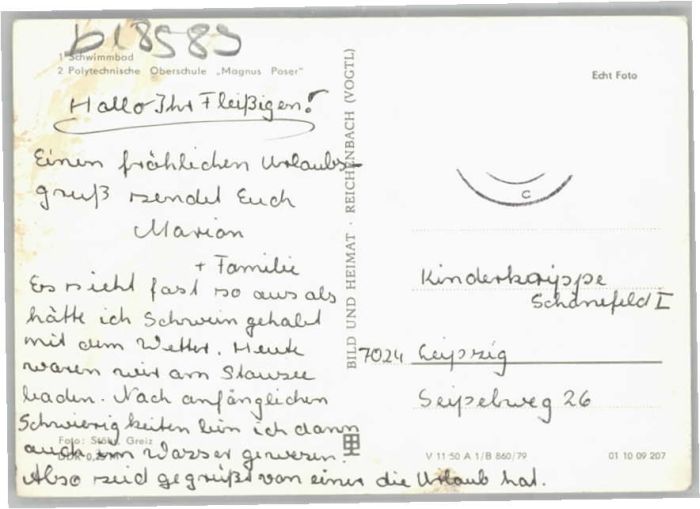 b18589
1 Schwimmbad
2 Polytechnische Oberschule „Magnus Poser"
Echt Foto
Hallo Ihr Fleißigen!
Einen fröhlichen Urlaubs-
gruß sendet Euch
Marion
+ Familie
Es sieht fast so aus als
hätte ich Schwein gehabt
mit dem Wetter. Heute
waren wir am Stausee
baden. Nach anfänglichen
Schwierigkeiten bin ich dann
auch im Wasser gewesen!
Also seid gegrüßt von einer die Urlaub hat.
Foto: Stöhr, Greiz
DDR 0,25 M
BILD UND HEIMAT · REICHENBACH (VOGTL)
C
Kinderkrippe
Schönefeld I
7024 Leipzig
Seipelweg 26
V 11 50 A 1/B 860/79
01 10 09 207